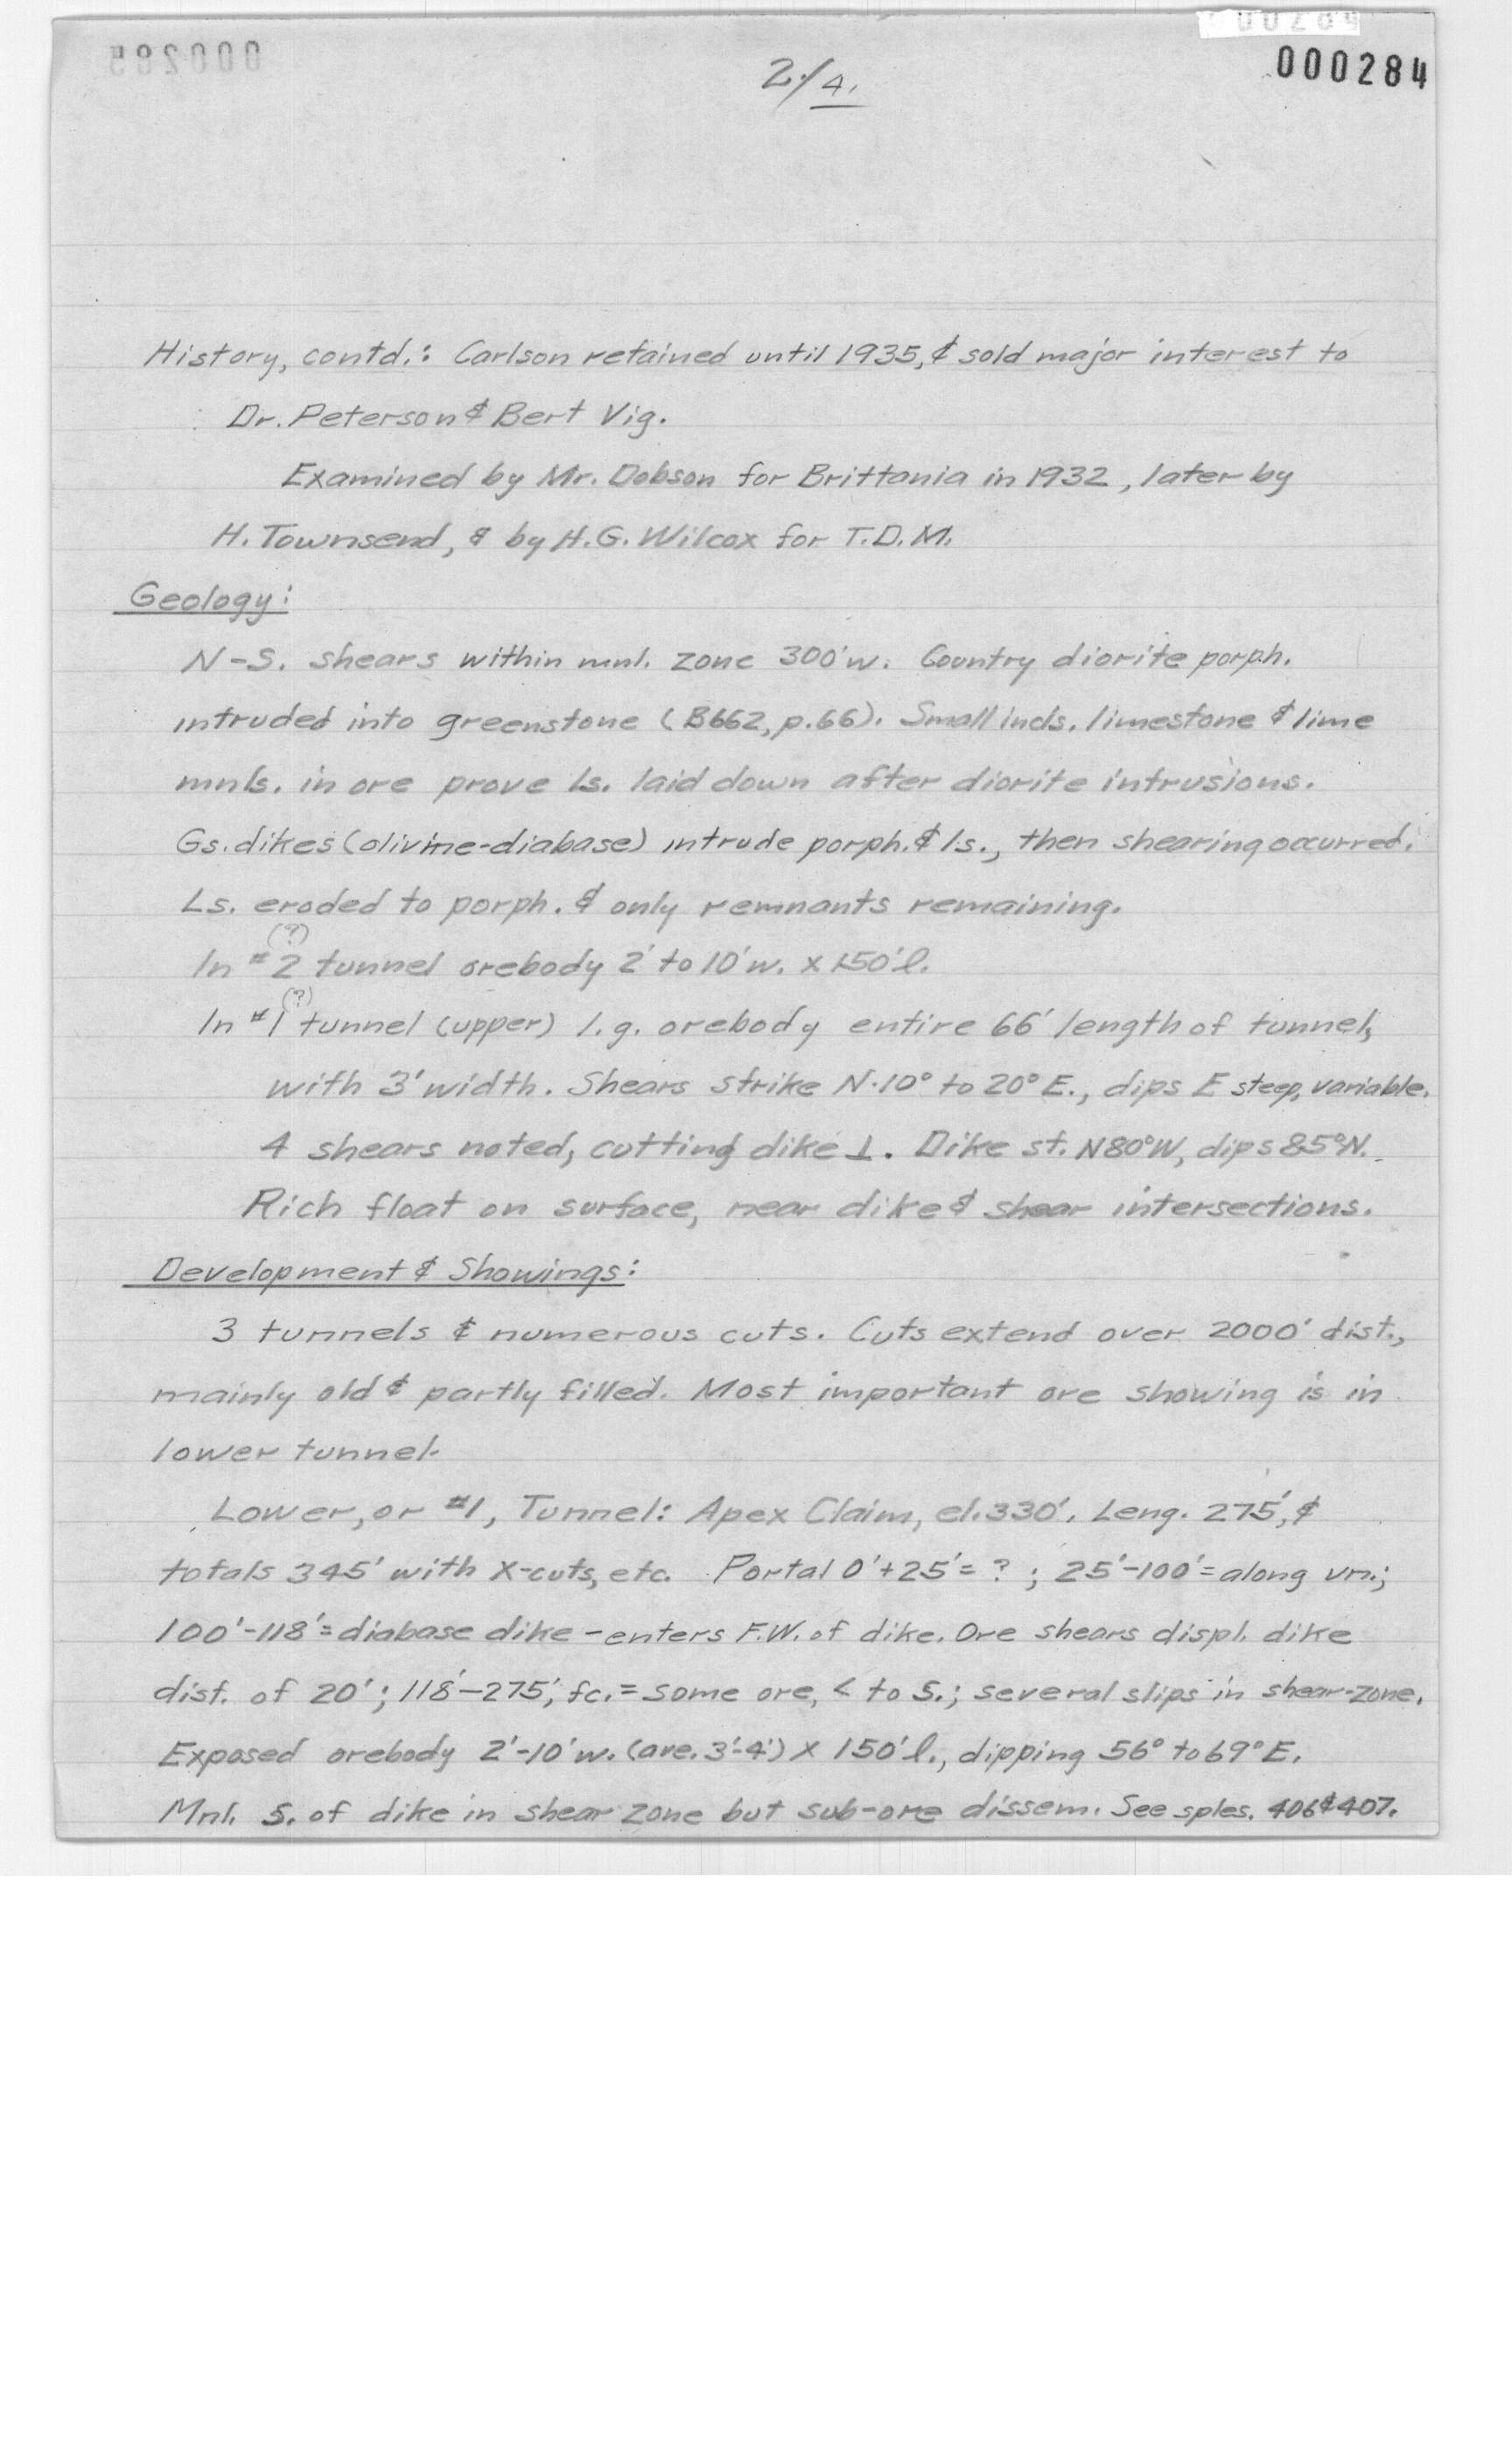 000285
000284
2/4.
History, contd.: Carlson retained until 1935, & sold major interest to
Dr. Peterson & Bert Vig.
Examined by Mr. Dobson for Brittania in 1932, later by
H. Townsend, & by H.G. Wilcox for T.D.M.
Geology:
N-S. shears within mnl. zone 300'w. Country diorite porph.
intruded into greenstone (B662, p.66). Small incls. limestone & lime
mnls. in ore prove ls. laid down after diorite intrusions.
Gs. dikes (olivine-diabase) intrude porph. & ls., then shearing occurred.
Ls. eroded to porph. & only remnants remaining.
(?)
In #2 tunnel orebody 2' to 10'w. x 150'l.
(?)
In #1 tunnel (upper) l.g. orebody entire 66' length of tunnel,
with 3' width. Shears strike N.10° to 20° E., dips E steep, variable.
4 shears noted, cutting dike ⊥. Dike st. N80°W, dips 85°N.
Rich float on surface, near dike & shear intersections.
Development & Showings:
3 tunnels & numerous cuts. Cuts extend over 2000' dist.,
mainly old & partly filled. Most important ore showing is in
lower tunnel.
Lower, or #1, Tunnel: Apex Claim, el. 330'. Leng. 275', &
totals 345' with X-cuts, etc. Portal 0'+25'= ? ; 25'-100'= along vn.;
100'-118'= diabase dike - enters F.W. of dike. Ore shears displ. dike
dist. of 20'; 118'-275', fc.= some ore, < to S.; several slips in shear-zone.
Exposed orebody 2'-10'w. (ave. 3'-4') X 150'l., dipping 56° to 69° E.
Mnl. S. of dike in shear zone but sub-ore dissem. See sples. 406 & 407.